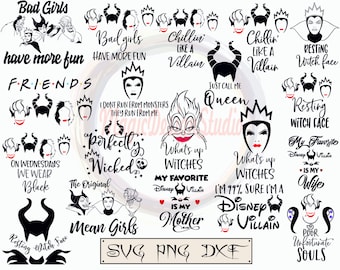 Bad Girls
have more fun
Bad girls
HAVE MORE FUN
Chillin'
LIKE A
Villain
Chillin'
LIKE A
Villain
RESTING
Witch face
FRIENDS
I DON'T RUN FROM MONSTERS
THEY RUN FROM ME
JUST CALL ME
Queen
RESTING
Witch FACE
ON WEDNESDAYS
WE WEAR
Black
Perfectly
Wicked
What's up
WITCHES
What's up
WITCHES
My Favorite
Disney Villain
IS MY
Wife
The Original
Mean Girls
MY FAVORITE
Disney Villain
IS MY
Mother
I'M 99% SURE I'M A
Disney
VILLAIN
POOR
Unfortunate
SOULS
SVG PNG DXF